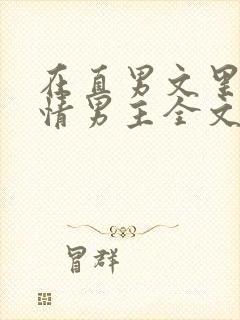 在直男文里
情男主全文
冒群